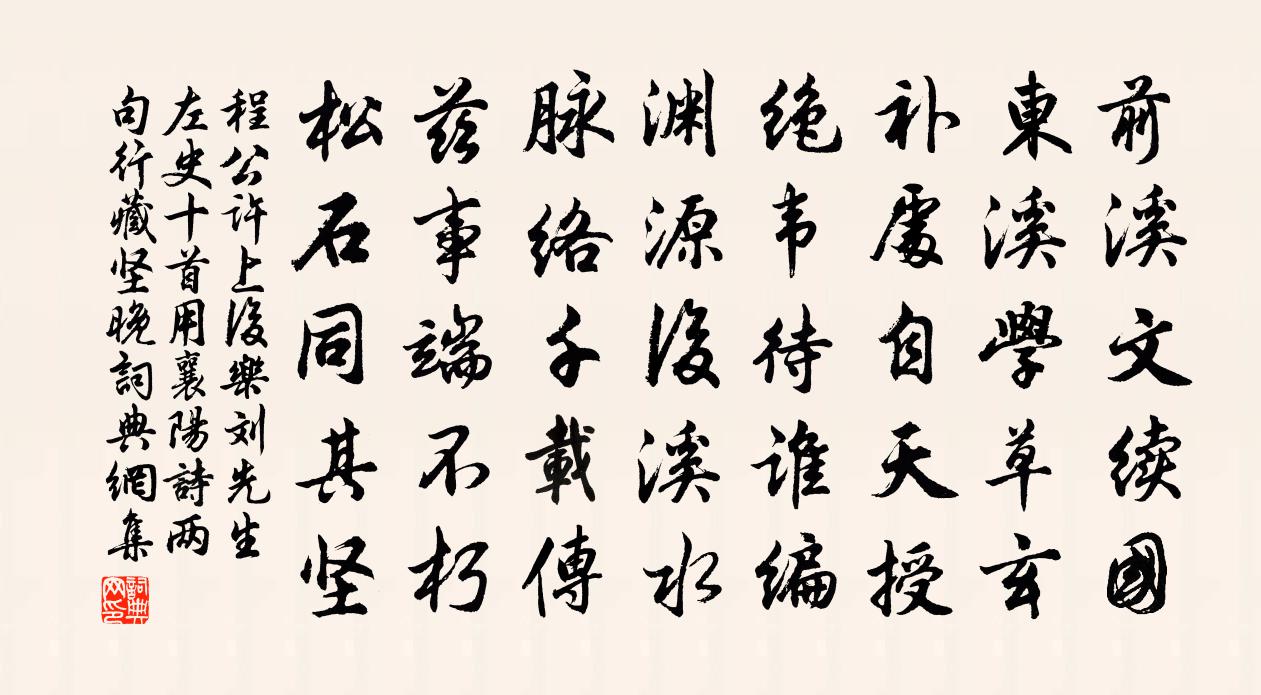 前溪文续國
東溪學草玄
补處自天授
绝韦待谁编
渊源後溪水
脉络千載傳
兹事端不朽
松石同其坚
程公许上後樂刘先生
左史十首用襄陽詩两
句行藏坚晚詞典網集
詞典网印